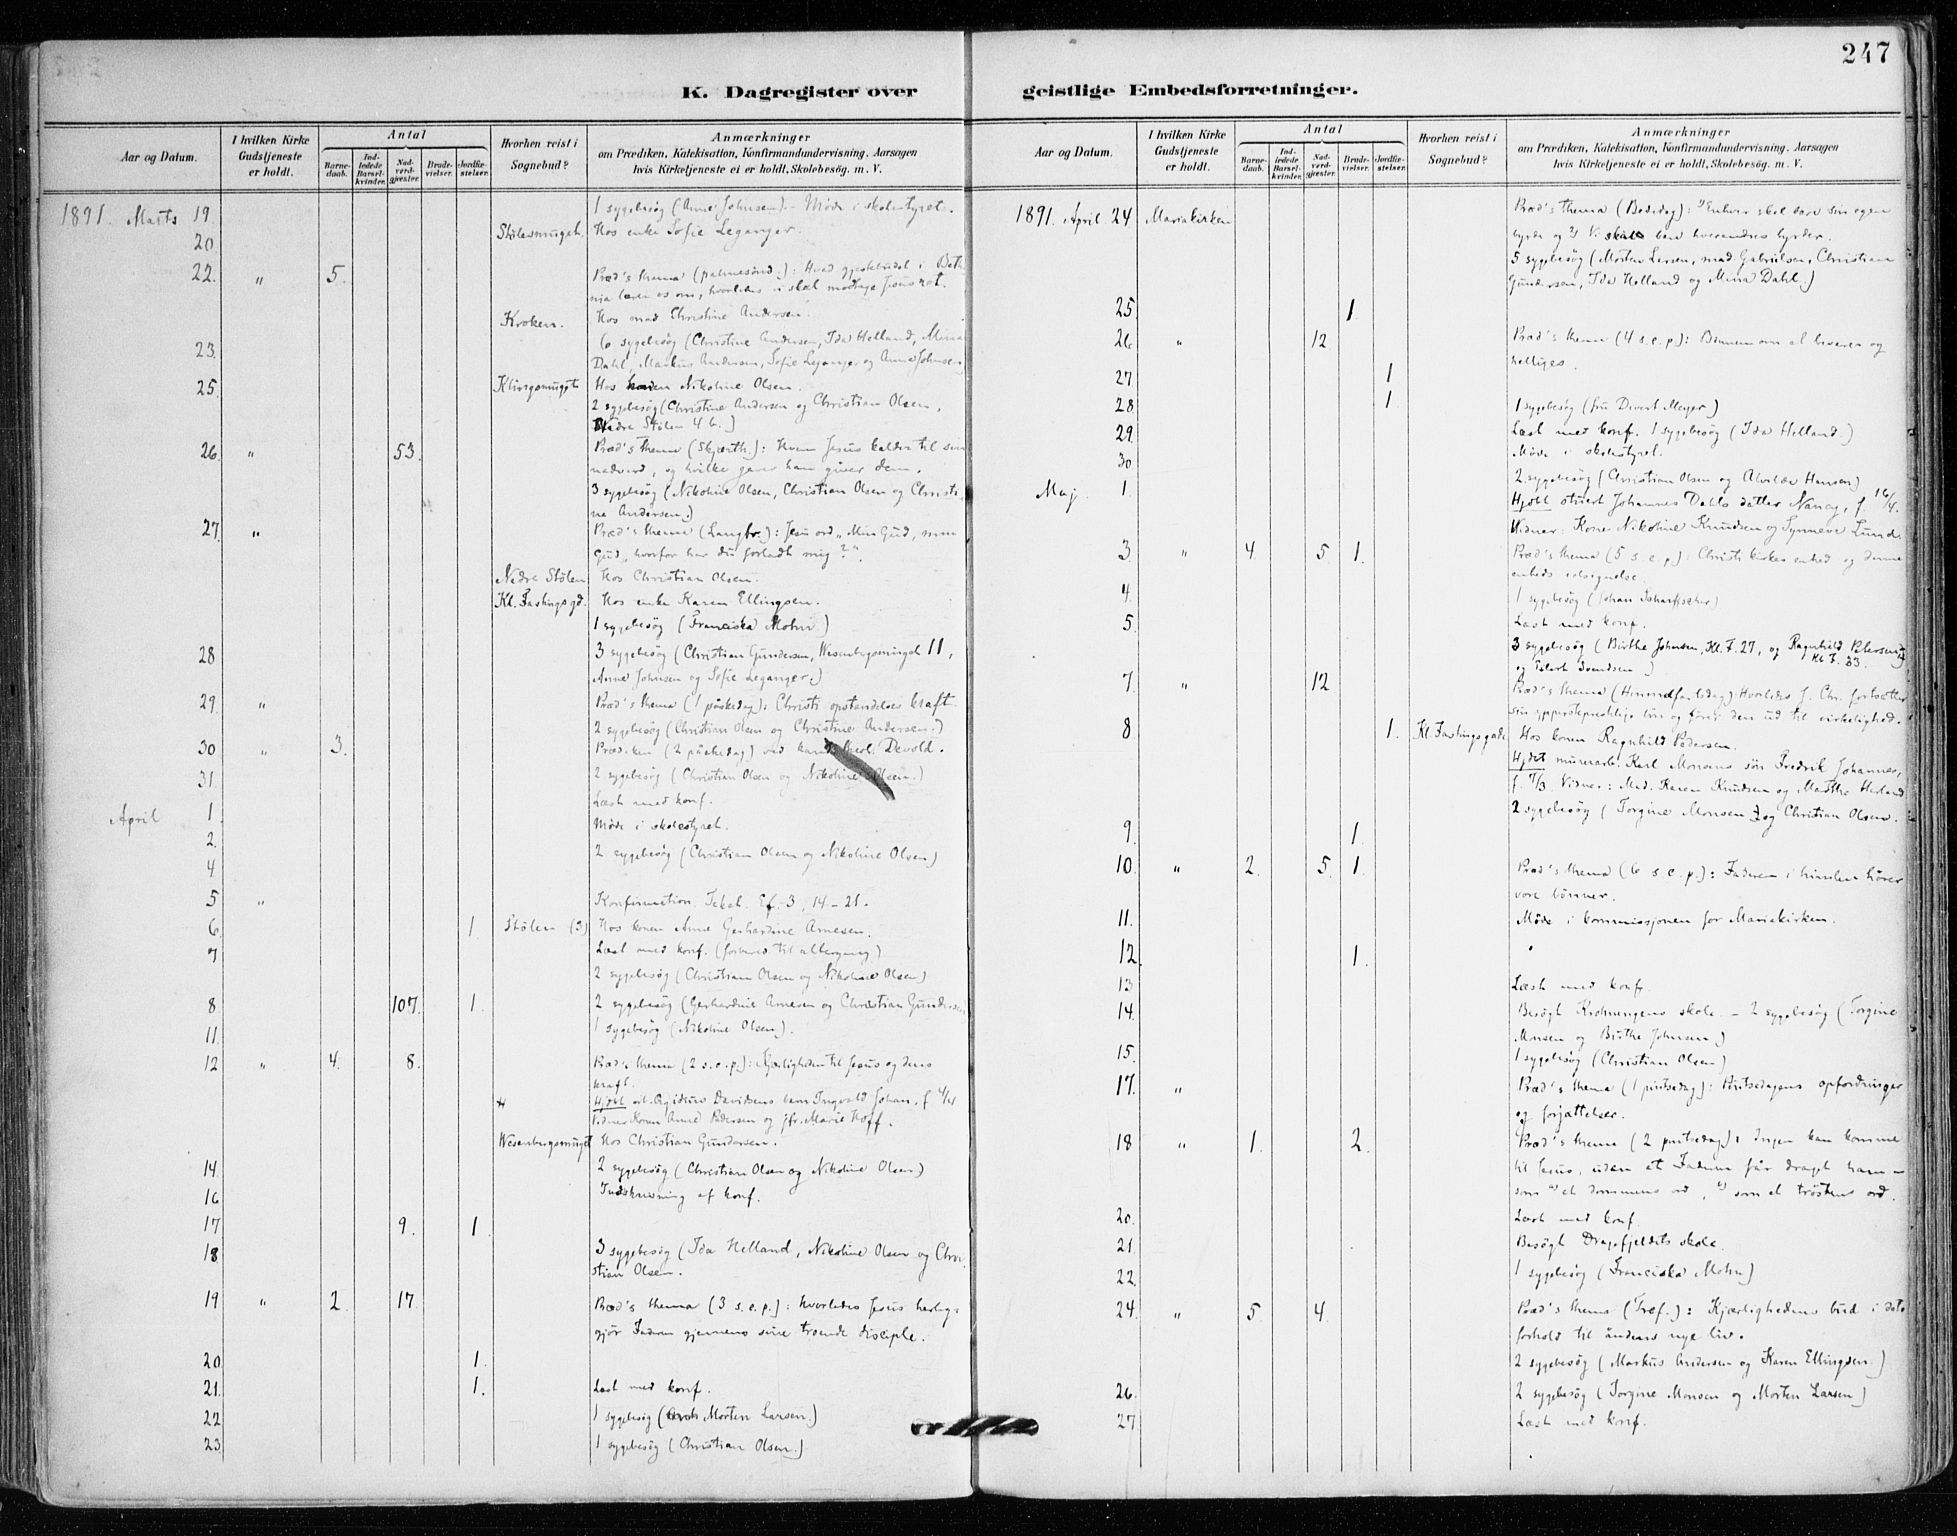 247
K. Dagregister over geistlige Embedsforretninger.
Aar og Datum.
I hvilken Kirke Gudstjeneste er holdt.
Antal
Barnedaab.
Indledede Barselkvinder.
Nadverdgjæster.
Brudevielser.
Jordfæstelser.
Hvorhen reist i Sognebud?
Anmærkninger
om Prædiken, Katekisation, Konfirmandundervisning. Aarsagen
hvis Kirketjeneste ei er holdt, Skolebesøg. m. V.
1891. Marts 19. 1 sygebesøg (Anne Johnsen). - Møde i skolestyret.
20 Stølesmuget. Hos enke Sofie Leganger.
22. " 5. Præd's thema (palmesønd.): Hvad gjæstebudet i Betha
nia lærer os om, hvorledes vi skal modtage Jesus ret.
Kroken. Hos mad Christine Andersen.
23. 6 sygebesøg (Christine Andersen, Ida Helland, Mina
Dahl, Markus Andersen, Sofie Leganger og Anne Johnsen)
25. Klingesmuget Hos Nikoline Olsen.
2 sygebesøg (Christine Andersen og Christian Olsen,
Nedre Stølen 4 b.)
26. " 53. Præd's thema (Skjærth.): Hvem Jesus kalder til sin
nadverd, og hvilke gaver han giver dem.
3 sygebesøg (Nikoline Olsen, Christian Olsen og Christi-
ne Andersen.)
27. " Præd's thema (Langfr.): Jesu ord „Min Gud, min
Gud, hvorfor har du forladt mig?".
Nedre Stølen Hos Christian Olsen.
Kl. Fastingsgd. Hos enke Karen Ellingsen.
1 sygebesøg (Franciska Mohn)
28 3 sygebesøg (Christian Gundersen, Wesenbergsmuget 11,
Anne Johnsen og Sofie Leganger.)
29. " Præd's thema (1 påskedag): Christi opstandelses kraft.
2 sygebesøg (Christian Olsen og Christine Andersen.)
30 " 3. Prædiken (2 påskedag) ved kand. theol. Devold.
31. 2 sygebesøg (Christian Olsen og Nikoline Olsen.)
April 1. Læst med konf.
2. Møde i skolestyret.
4 2 sygebesøg (Christian Olsen og Nikoline Olsen)
5 " Konfirmation. Tekst. Ef. 3, 14-21.
6. 1. Stølen (3) Hos konen Anne Gerhardine Arnesen.
7 Læst med konf. (forbered. til altergang)
2 sygebesøg (Christian Olsen og Nikoline Olsen)
8 107. 1. 2 sygebesøg (Gerhardine Arnesen og Christian Gundersen)
11. 1 sygebesøg (Nikoline Olsen).
12 " 4. 8. Præd's thema (2 s. e. p.): Kjærligheden til Jesus og dens
kraft.
Hjdbt arb. Davidsens barn Ingvald Johan, f
Vidner: Konen Anne Pedersen og jfr. Marie Hoff.
Wesenbergsmuget Hos Christian Gundersen.
14. 2 sygebesøg (Christian Olsen og Nikoline Olsen)
16 Indskrivning af konf.
17 9. 1.
18 3 sygebesøg (Ida Helland, Nikoline Olsen og Chri-
stian Olsen.
19 " 2. 17. Præd's thema (3 s. e. p.): Hvorledes Jesus herlig-
gjør Faderen gjennem sine troende disciple.
20. 1.
21. 1. Læst med konf.
22 1 sygebesøg (Morten Larsen.)
23. 1 sygebesøg (Christian Olsen.)
Aar og Datum.
I hvilken Kirke Gudstjeneste er holdt.
Antal
Barnedaab.
Indledede Barselkvinder.
Nadverdgjæster.
Brudevielser.
Jordfæstelser.
Hvorhen reist i Sognebud?
Anmærkninger
om Prædiken, Katekisation, Konfirmandundervisning. Aarsagen
hvis Kirketjeneste ei er holdt, Skolebesøg. m. V.
1891. April 24 Mariakirken Præd's thema (Bededag): 1) Enhver skal bære sin egen
byrde og 2) Vi skulle bære hverandres byrder.
5 sygebesøg (Morten Larsen, mad. Gabrielsen, Christian
Gundersen, Ida Helland og Mina Dahl.)
25. 1.
26. " 12 Præd's thema (4 s. e. p.): Bønnen om at bevares og
helliges.
27 1
28 1. 1 sygebesøg (fru Divert Meyer)
29. Læst med konf. 1 sygebesøg (Ida Helland.)
30 Møde i skolestyret.
Maj. 1. 2 sygebesøg (Christian Olsen og Hansen)
Hjdbt stuert Johannes Dahls datter Nancy, f. 16/4.
Vidner: Kone Nikoline Knudsen og Synneve Lund.
3. " 4. 5 1. Præd's thema (5 s. e. p.): Christi kirkes enhed og denne
enheds velsignelse.
4. 1 sygebesøg (Johan Scharffscher)
5. Læst med konf.
3 sygebesøg (Birthe Johnsen, Kl. F. 27, og Ragnhild Petersen,
Kl. F. 33.
og Svendsen)
7. " 12 Præd's thema (Himmelfartsdag) Hvorledes J. Chr. fortsætter
sin ypperstepræstlige bøn og fører den ud til virkelighed.
8 1. Kl. Fastingsgade Hos konen Ragnhild Pedersen.
Hjdbt murerarb. Karl Monsens søn Fredrik Johannes,
f. Vidner: Mad. Karen Knudsen og Marthe Herland
2 sygebesøg (Torgine Monsen og Christian Olsen.
9. 1.
10. " 2. 5. 1. Præd's thema (6 s. e. p.): Faderen i himlen hører
vore bønner.
11. Møde i kommissjonen for Mariakirken.
12 1.
13 Læst med konf.
14. Besøgt Krohnengens skole. - 2 sygebesøg (Torgine
Monsen og Birthe Johnsen)
15. 1 sygebesøg (Christian Olsen)
17. " Præd's thema (1 pintsedag): Pintsedagens opfordringer
og forjættelser.
18 " 1. 2. Præd's thema (2 pintsedag): Ingen kan komme
til Jesus, uden at Faderen får dragt ham -
som a) et dommens ord, b) som et trøstens ord.
20. Læst med konf.
21. Besøgt Dragefjeldets skole.
22. 1 sygebesøg (Franciska Mohn)
24. " 5. 4. Præd's thema (Tref.): Kjærlighedens bud i dets
forhold til åndens nye liv.
2 sygebesøg (Markus Andersen og Karen Ellingsen.)
26. 2 sygebesøg (Torgine Monsen og Morten Larsen)
27 Læst med konf.